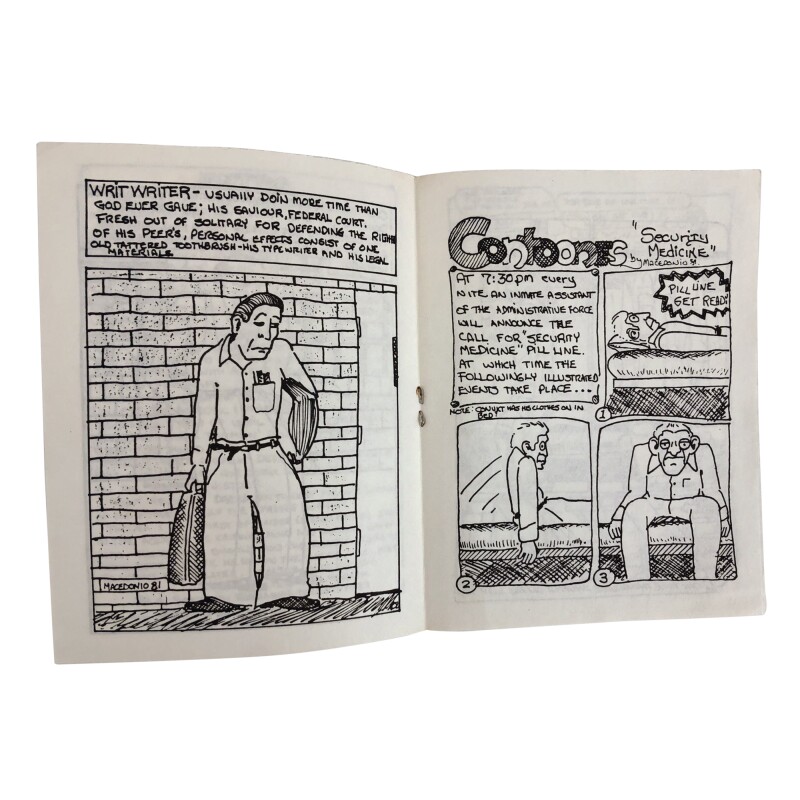 WRIT WRITER - USUALLY DOIN MORE TIME THAN
GOD EVER GAVE; HIS SAVIOUR, FEDERAL COURT.
FRESH OUT OF SOLITARY FOR DEFENDING THE RIGHTS
OF HIS PEER'S, PERSONAL EFFECTS CONSIST OF ONE
OLD TATTERED TOOTHBRUSH - HIS TYPEWRITER AND HIS LEGAL
MATERIALS
MACEDONIO 81
Contoones
"Security
Medicine"
by MACEDONIO 81
AT 7:30pm every
NITE AN INMATE ASSISTANT
OF THE ADMINISTRATIVE FORCE
WILL ANNOUNCE THE
CALL FOR "SECURITY
MEDICINE" PILL LINE.
AT WHICH TIME THE
FOLLOWINGLY ILLUSTRATED
EVENTS TAKE PLACE...
NOTE: CONVICT HAS HIS CLOTHES ON IN
BED!
PILL LINE
GET READY
1
2
3